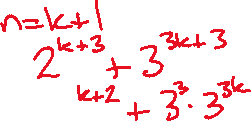 n=k+1
2^{k+3} + 3^{3k+3}
k+2 + 3^3 · 3^{3k}